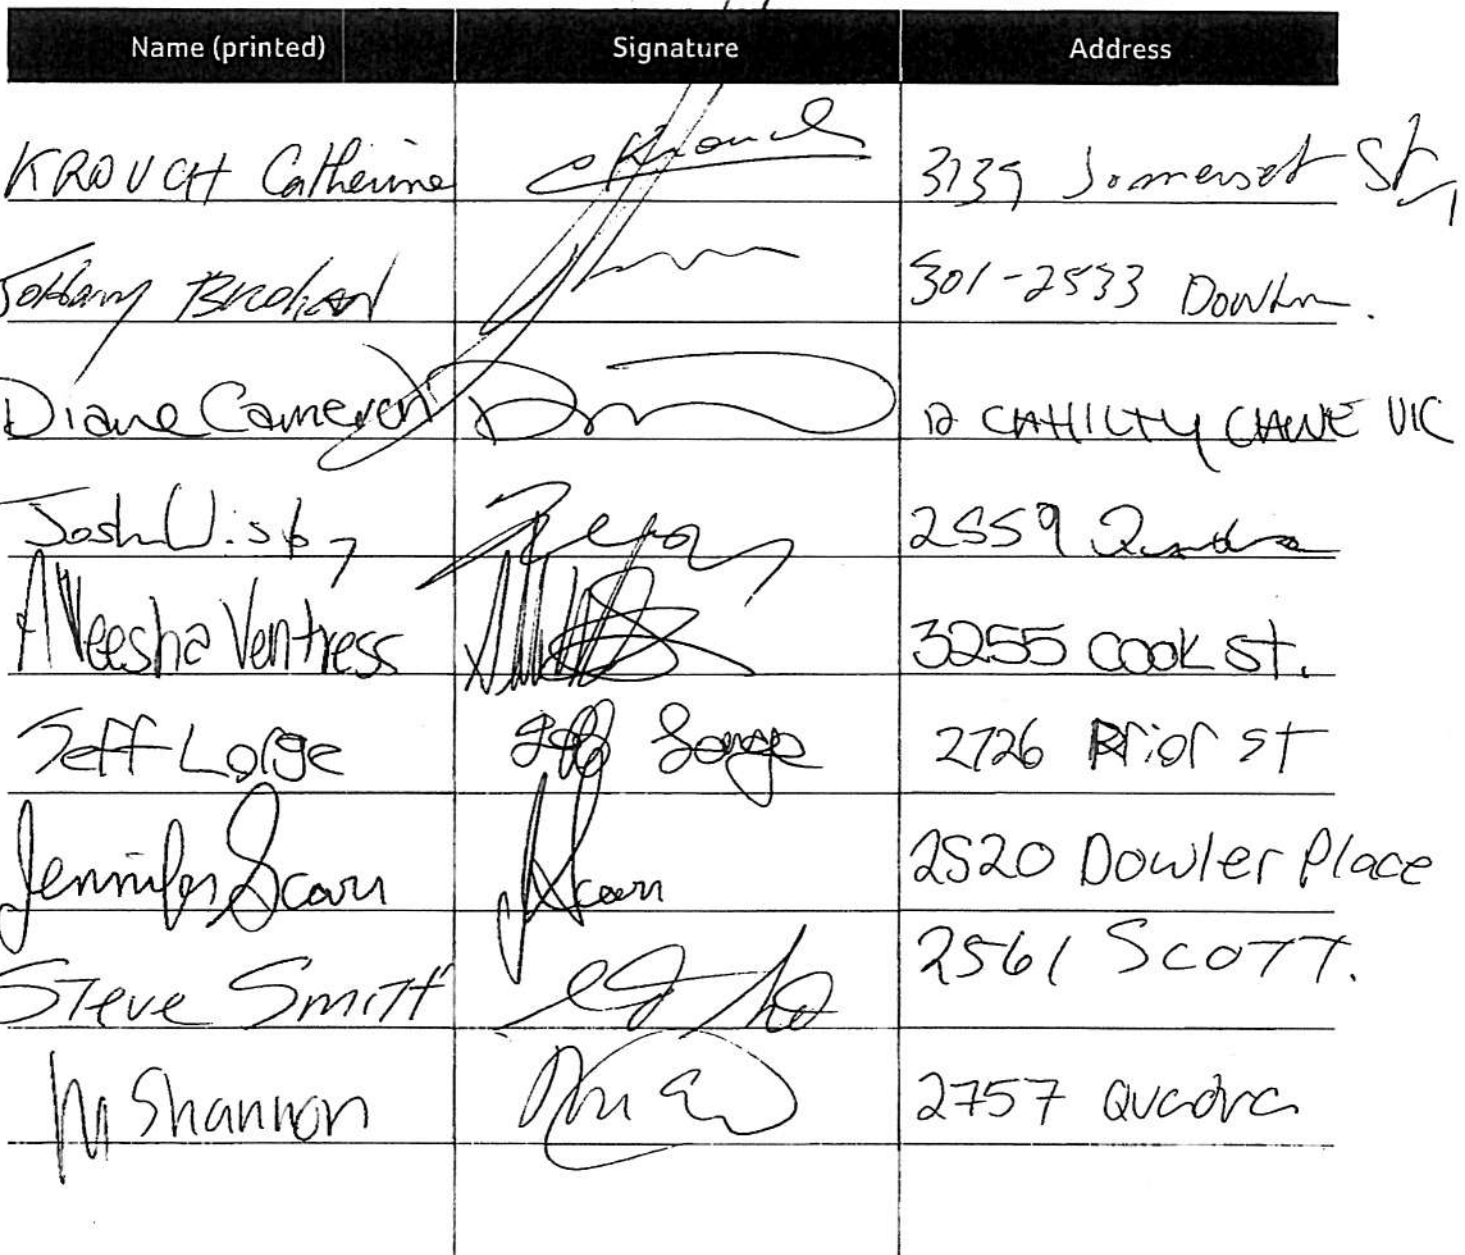 Name (printed) Signature Address
KROUCH Catherine CKrouch 3139 Somerset St
Johany 301-2533 Dowler
Diane Cameron 12 CAHILTY LANE VIC
Josh Wisby 2559 Quadra
Aleesha Ventress 3255 COOK St.
Jeff Lorge Jeff Lorge 2726 Prior st
Jennifer Scarr JScarr 2520 Dowler Place
Steve Smith 2561 SCOTT.
M Shannon 2757 Quadra